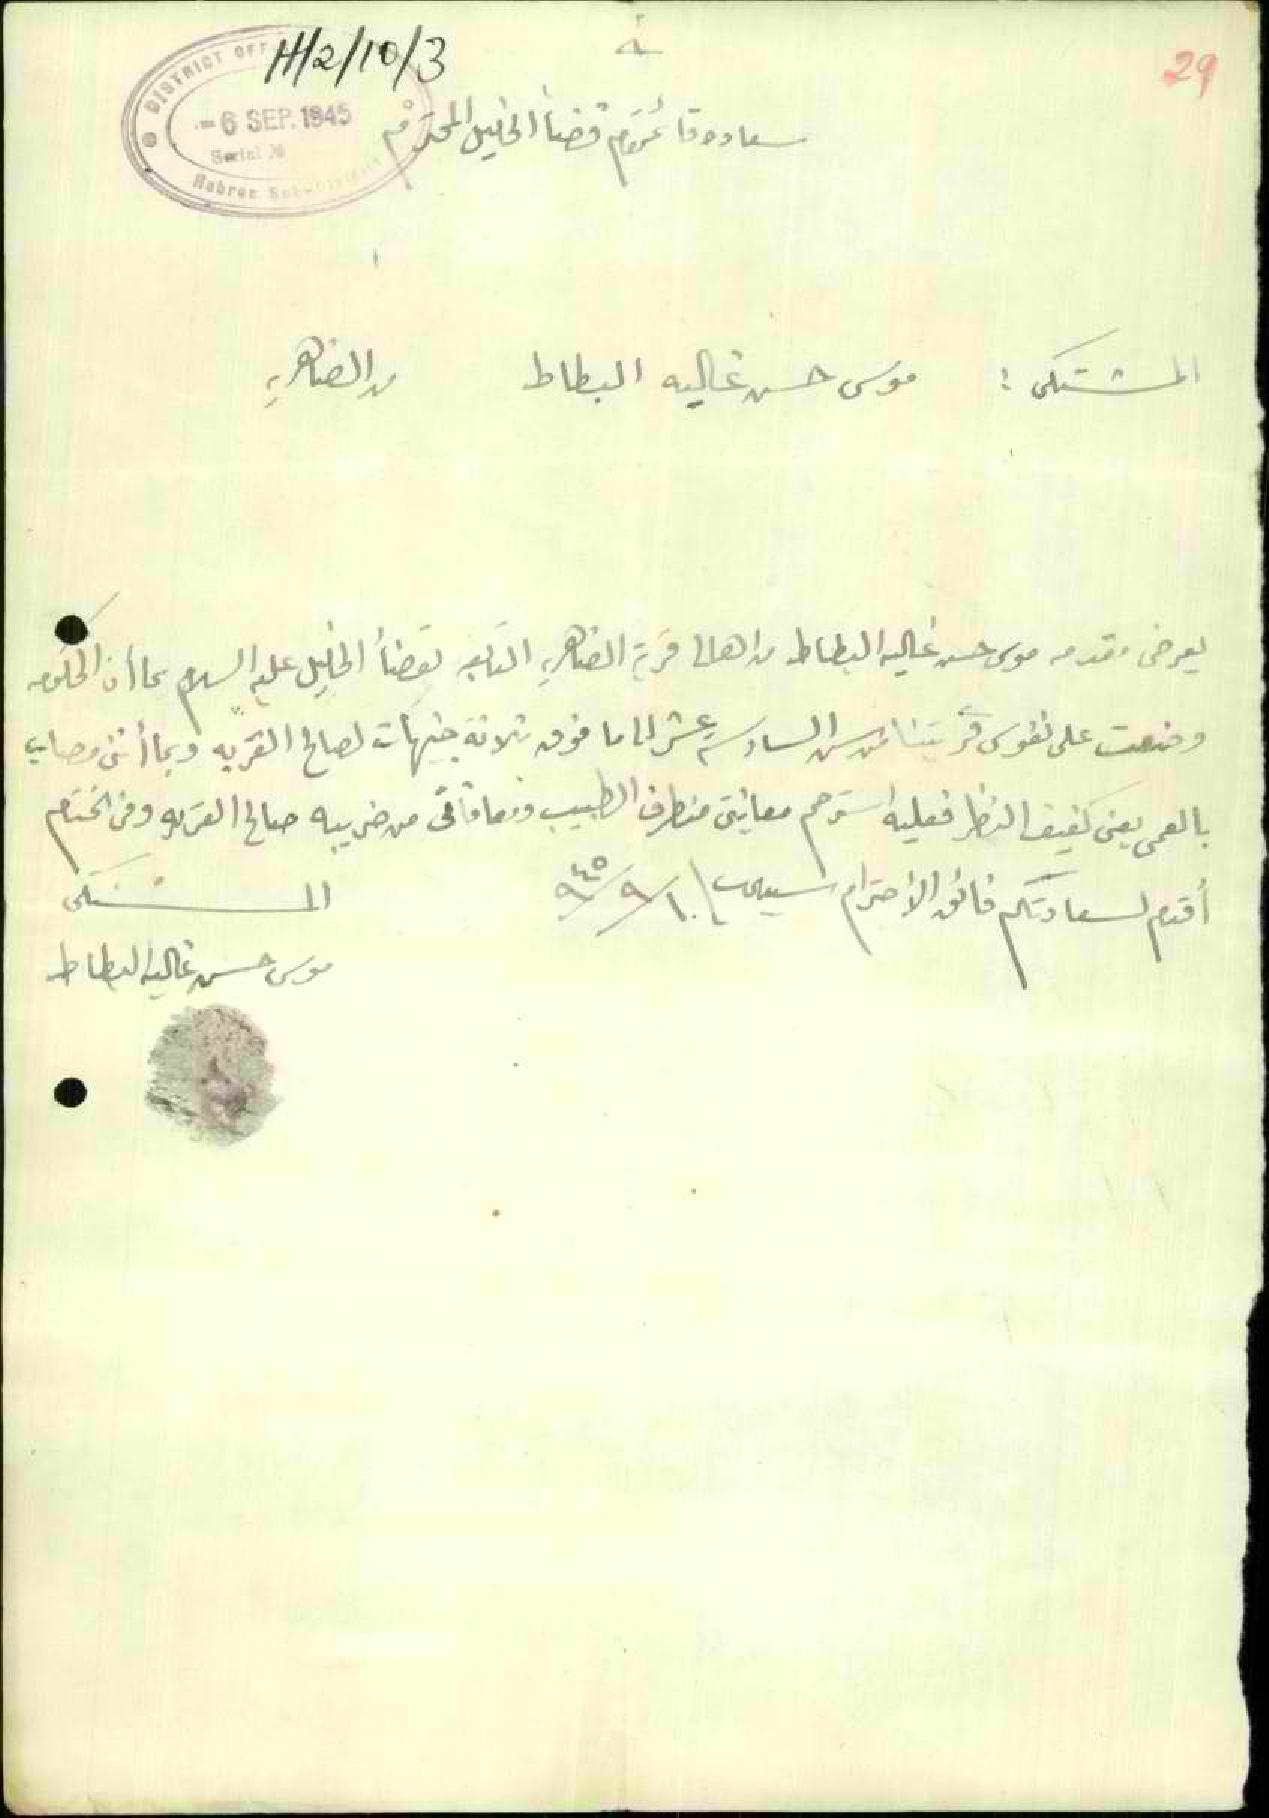 H/2/10/3
29
DISTRICT OFF
-6 SEP. 1945
Serial №
Hebron Sub-District
سعادة قائمقام قضأ الخليل المحترم
المشتكى : موسى حسن غاليه البطاط من الضاهريه
يعرض مقدمه موسى حسن غاليه البطاط من اهالي قرية الضاهريه التابعه لقضأ الخليل عليه السلام بما أن الحكومه
وضعت على نفوس قريتنا من سن السادسة عشر الى ما فوق ثلاثة جنيهات لصالح القريه وبما أنني مصاب
بالعمى يعني كفيف النظر فعليه استرحم معاينتي من طرف الطبيب ومعافاتي من ضريبه صالح القريه وفي الختام
أقدم لسعادتكم فائق الأحترام سيدي
المشتكى
موسى حسن غاليه البطاط